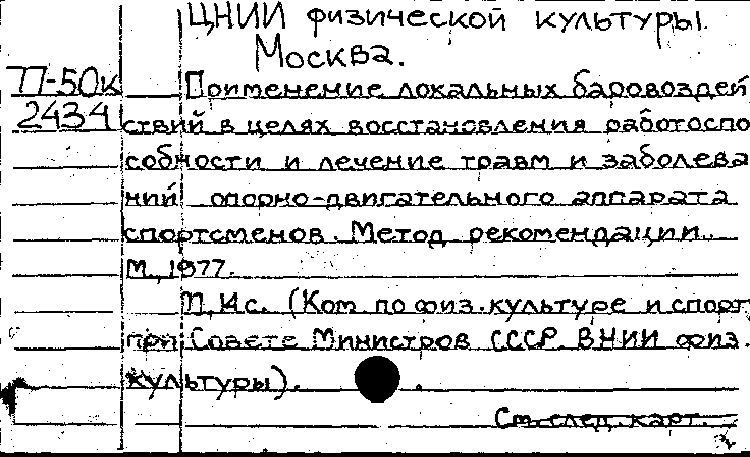 ЦНИИ физической культуры.
Москва.
П-50к Применение локальных баровоздей
2434 ствий в целях восстановления работоспо
собности и лечение травм и заболева
ний опорно-двигательного аппарата
спортсменов. Метод. рекомендации.
М., 1977.
П, 14с. (Ком. по физ. культуре и спорт
при Совете Министров СССР. ВНИИ физ.
культуры).
См. след. карт.